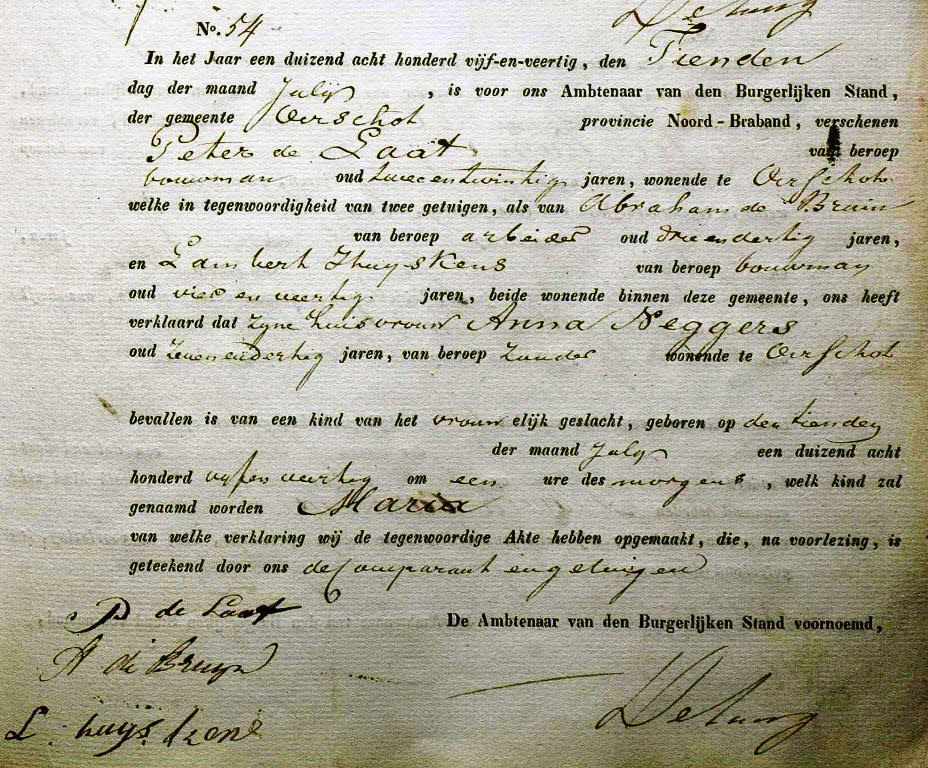 No. 54
In het Jaar een duizend acht honderd vijf-en-veertig, den Tienden
dag der maand Julij, is voor ons Ambtenaar van den Burgerlijken Stand,
der gemeente Oirschot provincie Noord-Braband, verschenen
Peter de Laat van beroep
bouwman oud twee en twintig jaren, wonende te Oirschot
welke in tegenwoordigheid van twee getuigen, als van Abraham de Bruin
van beroep arbeider oud drie en dertig jaren,
en Lambert Huyskens van beroep bouwman
oud vier en veertig jaren, beide wonende binnen deze gemeente, ons heeft
verklaard dat zyne huisvrouw Anna Neggers
oud zeven en dertig jaren, van beroep zonder wonende te Oirschot
bevallen is van een kind van het vrouwelijk geslacht, geboren op den tienden
der maand July een duizend acht
honderd vyf en veertig om een ure des morgens, welk kind zal
genaamd worden Maria
van welke verklaring wij de tegenwoordige Akte hebben opgemaakt, die, na voorlezing, is
geteekend door ons de Comparant en getuigen
P de Laat
De Ambtenaar van den Burgerlijken Stand voornoemd,
A de Bruyn
L huyskens